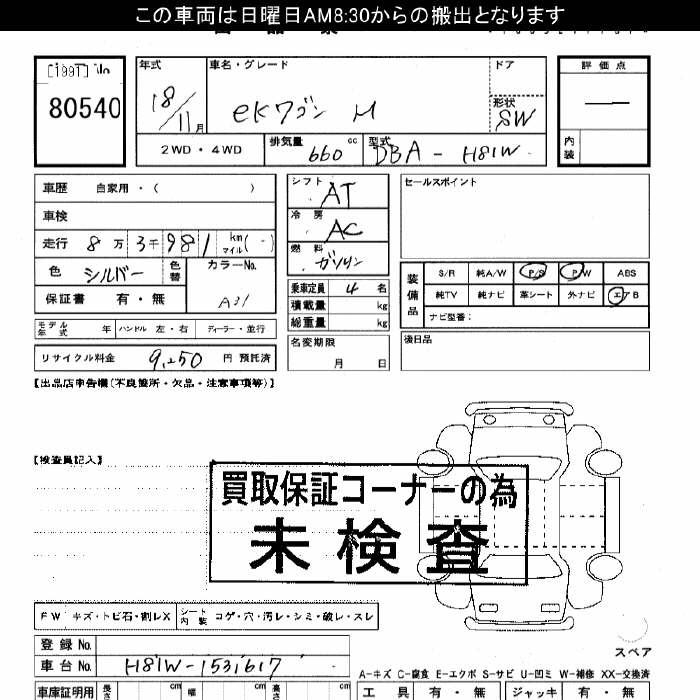 この車両は日曜日AM8:30からの搬出となります
80540
年式
18/11月
車名・グレード
eKワゴン M
ドア
形状
SW
2WD・4WD
排気量
660 cc
型式
DBA-H81W
評価点
内装
車歴 自家用・( )
車検
走行 8万3千981 km マイル( - )
色 シルバー
色替
カラーNo.
A31
保証書 有・無
モデル年式 年
ハンドル 左・右
ディーラー・並行
リサイクル料金 9,250円 預託済
シフト
AT
冷房
AC
燃料
ガソリン
乗車定員 4名
積載量 kg
総重量 kg
名変期限
月 日
セールスポイント
装備品
S/R 純A/W P/S P/W ABS
純TV 純ナビ 革シート 外ナビ エアB
ナビ型番:
後日品
【出品店申告欄(不良箇所・欠品・注意事項等)】
【検査員記入】
買取保証コーナーの為
未検査
FW キズ・トビ石・割レX
シート内装 コゲ・穴・汚レ・シミ・破レ・スレ
スペア
登録No.
車台No. H81W-1531617
A-キズ C-腐食 E-エクボ S-サビ U-凹ミ W-補修 XX-交換済
車庫証明用 長さ cm 幅 cm 高さ cm
工具 有・無 ジャッキ 有・無